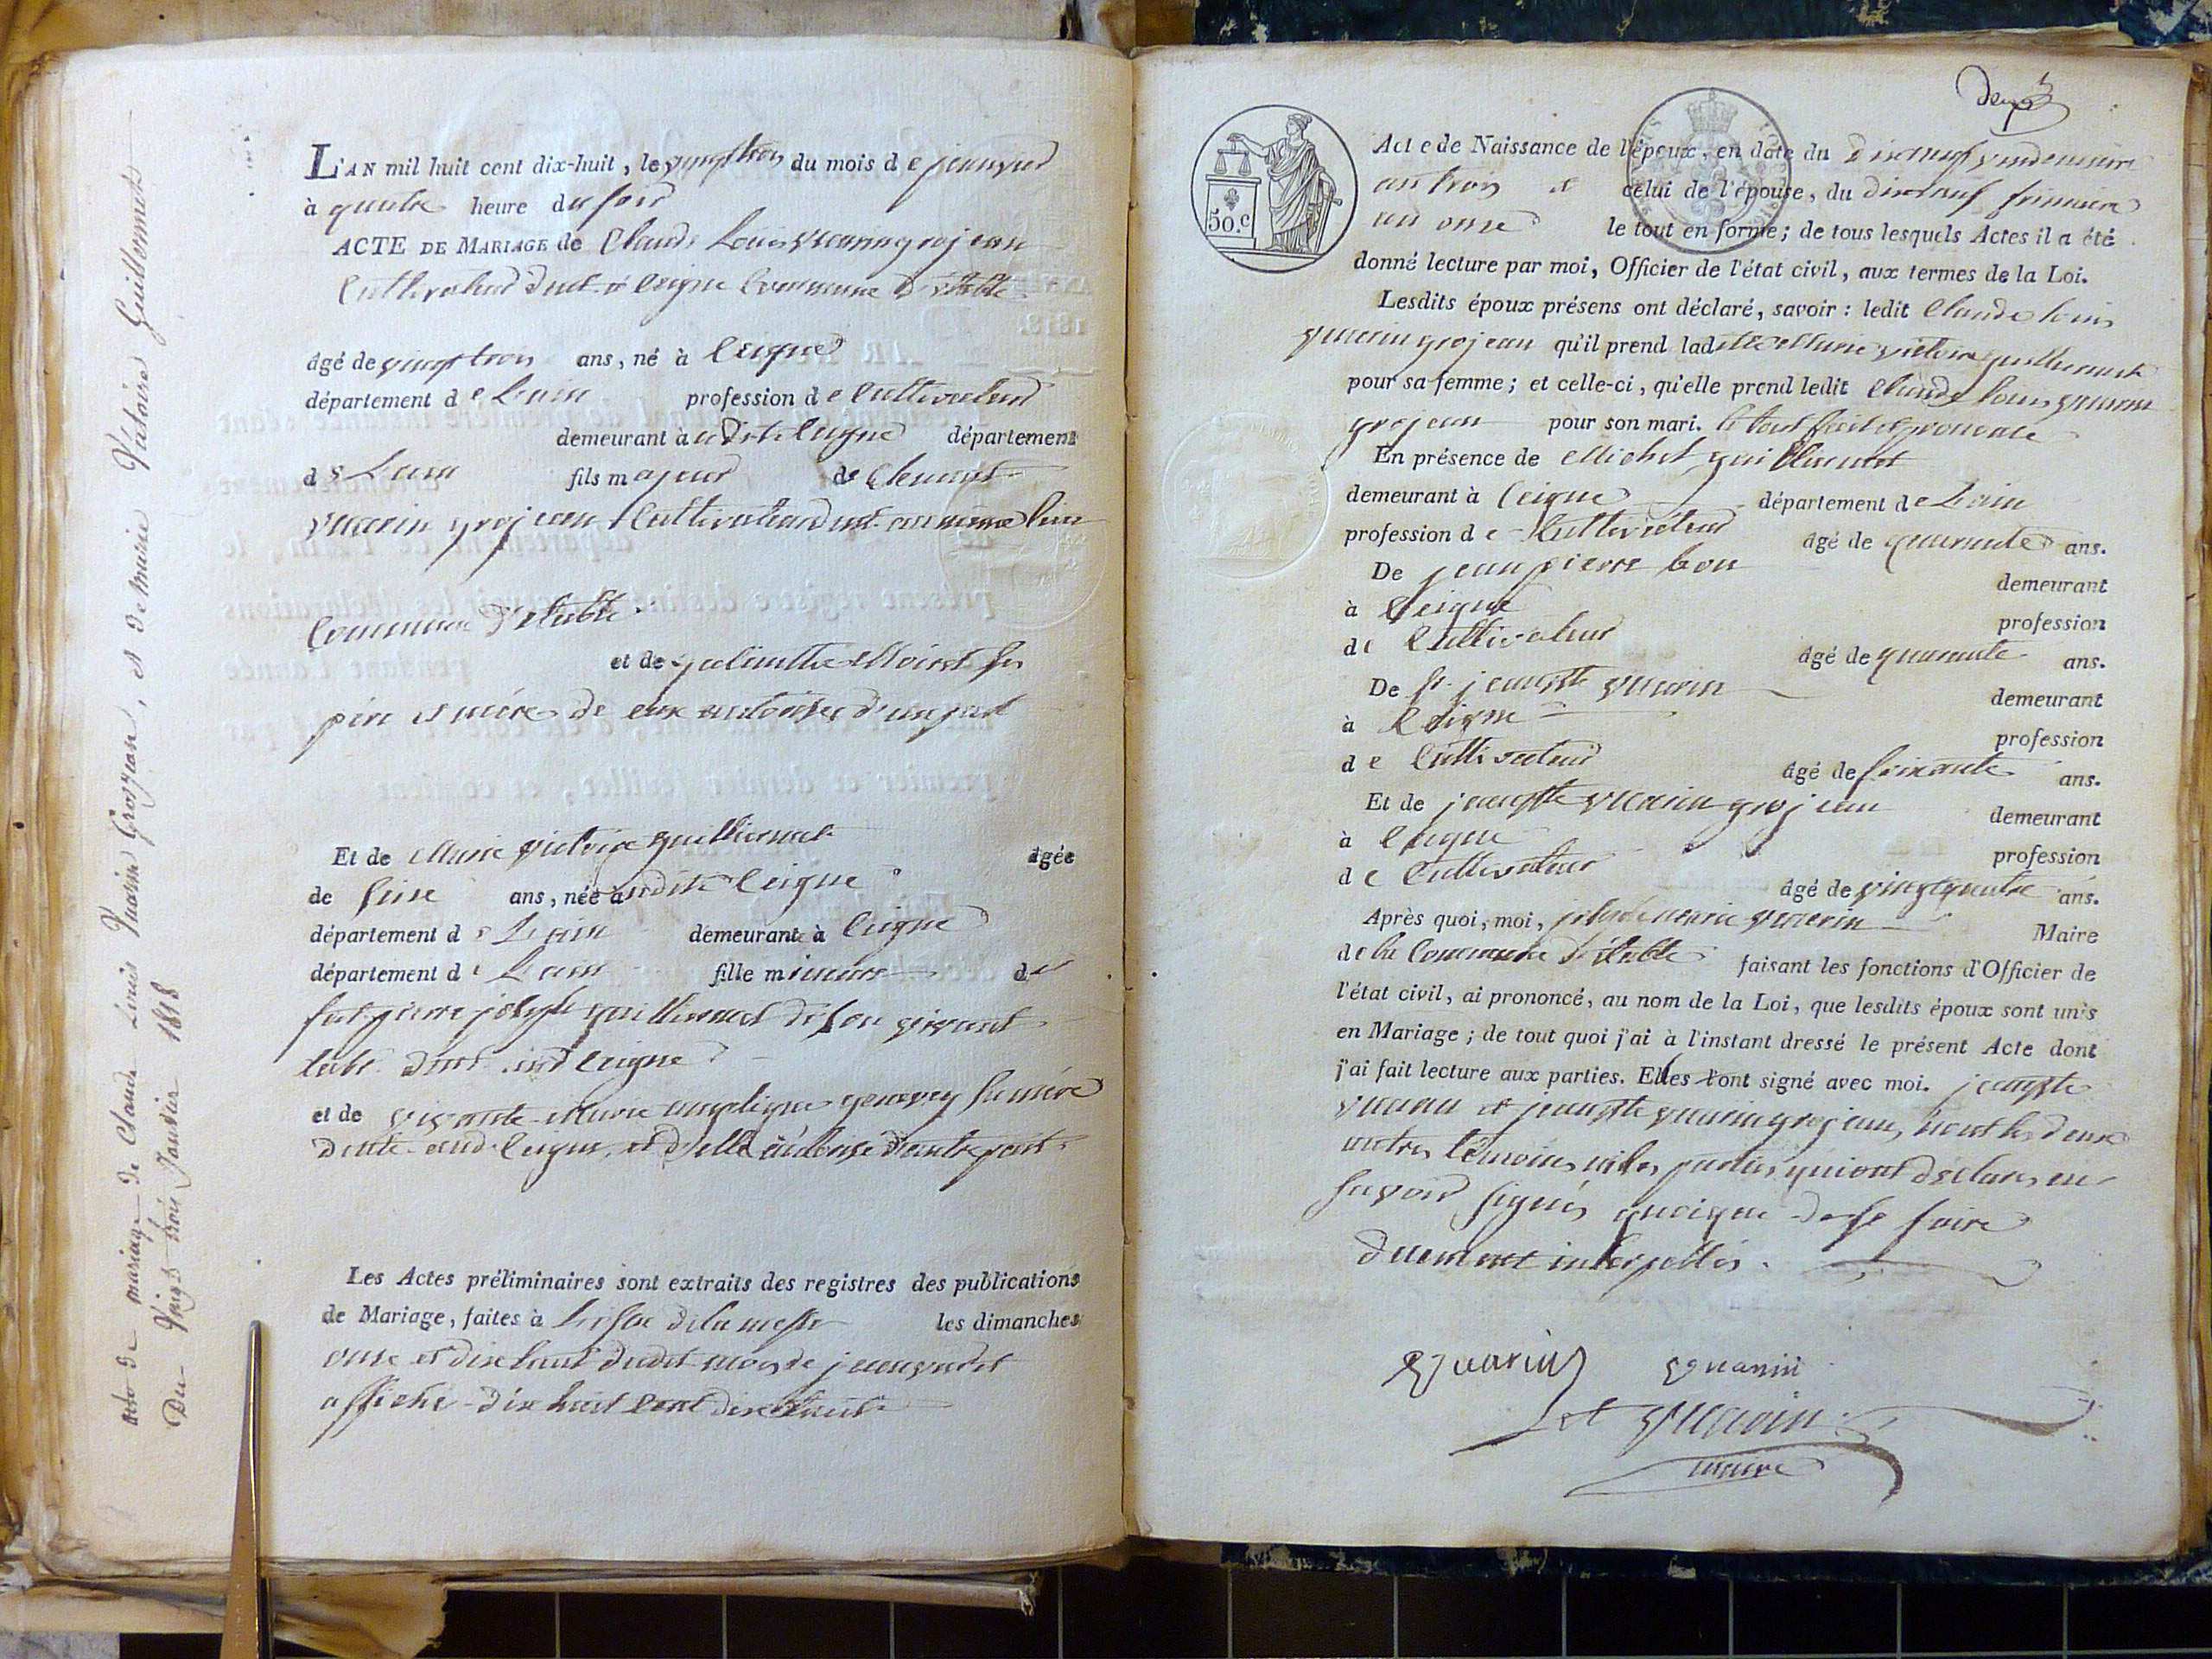 acte de mariage de Claude Louis Vuarin Grosjean, et de marie Victoire Guillermet
Du Vingt trois Janvier 1818
L'AN mil huit cent dix-huit, le vingt trois du mois de janvier
à quatre heure du soir
ACTE DE MARIAGE de Claude Louis vuarin grojean
Cultivateur à Ceigne Commune d'étable
âgé de vingt trois ans, né à Ceigne
département de Lain profession de Cultivateur
demeurant à Ceigne département
de Lain fils majeur de Clement
vuarin grojean Cultivateur au même lieu
Commune d'étable
et de Moiret ses
père et mère de eux autorisé d'une part
Et de Marie victoire guillermet âgée
de seise ans, née audit Ceigne
département de Lain demeurante à Ceigne
département de Lain fille mineure de
feu pierre joseph guillermet de son vivant
Ceigne
et de vivante Marie genevey sa mère
Ceigne, et d'elle autorisée d'autre part
Les Actes préliminaires sont extraits des registres des publications
de Mariage, faites à de la messe les dimanches
onse et dix huit dudit mois de janvier et
affiche dix huit cent dix huit
deux
50.C
Acte de Naissance de l'épeux, en date du dix neuf vendemiaire
an trois et celui de l'épouse, du dix neuf frimaire
an onse le tout en forme; de tous lesquels Actes il a été
donné lecture par moi, Officier de l'état civil, aux termes de la Loi.
Lesdits époux présens ont déclaré, savoir : ledit Claude louis
vuarin grojean qu'il prend ladite Marie victoire guillermet
pour sa femme; et celle-ci, qu'elle prend ledit Claude louis vuarin
grojean pour son mari. le tout fait et prononcé
En présence de Michel guillermet
demeurant à Ceigne département de Lain
profession de Cultivateur âgé de quarante ans.
De jean pierre bon demeurant
à Ceigne profession
de Cultivateur âgé de quarante ans.
De jean Bte vuarin demeurant
à Ceigne profession
de Cultivateur âgé de soixante ans.
Et de jean Bte vuarin grojean demeurant
à Ceigne profession
de Cultivateur âgé de vingt quatre ans.
Après quoi, moi, joseph marie vuarin Maire
de la Commune d'étable faisant les fonctions d'Officier de
l'état civil, ai prononcé, au nom de la Loi, que lesdits époux sont unis
en Mariage; de tout quoi j'ai à l'instant dressé le présent Acte dont
j'ai fait lecture aux parties. Elles l'ont signé avec moi. jean Bte
vuarin et jean Bte vuarin grojean, les deux
autres témoins ni les parties qui ont déclarés ne
savoir signés quoique de le faire
duement interpellés.
Vuarin Vuarin
et Vuarin
maire